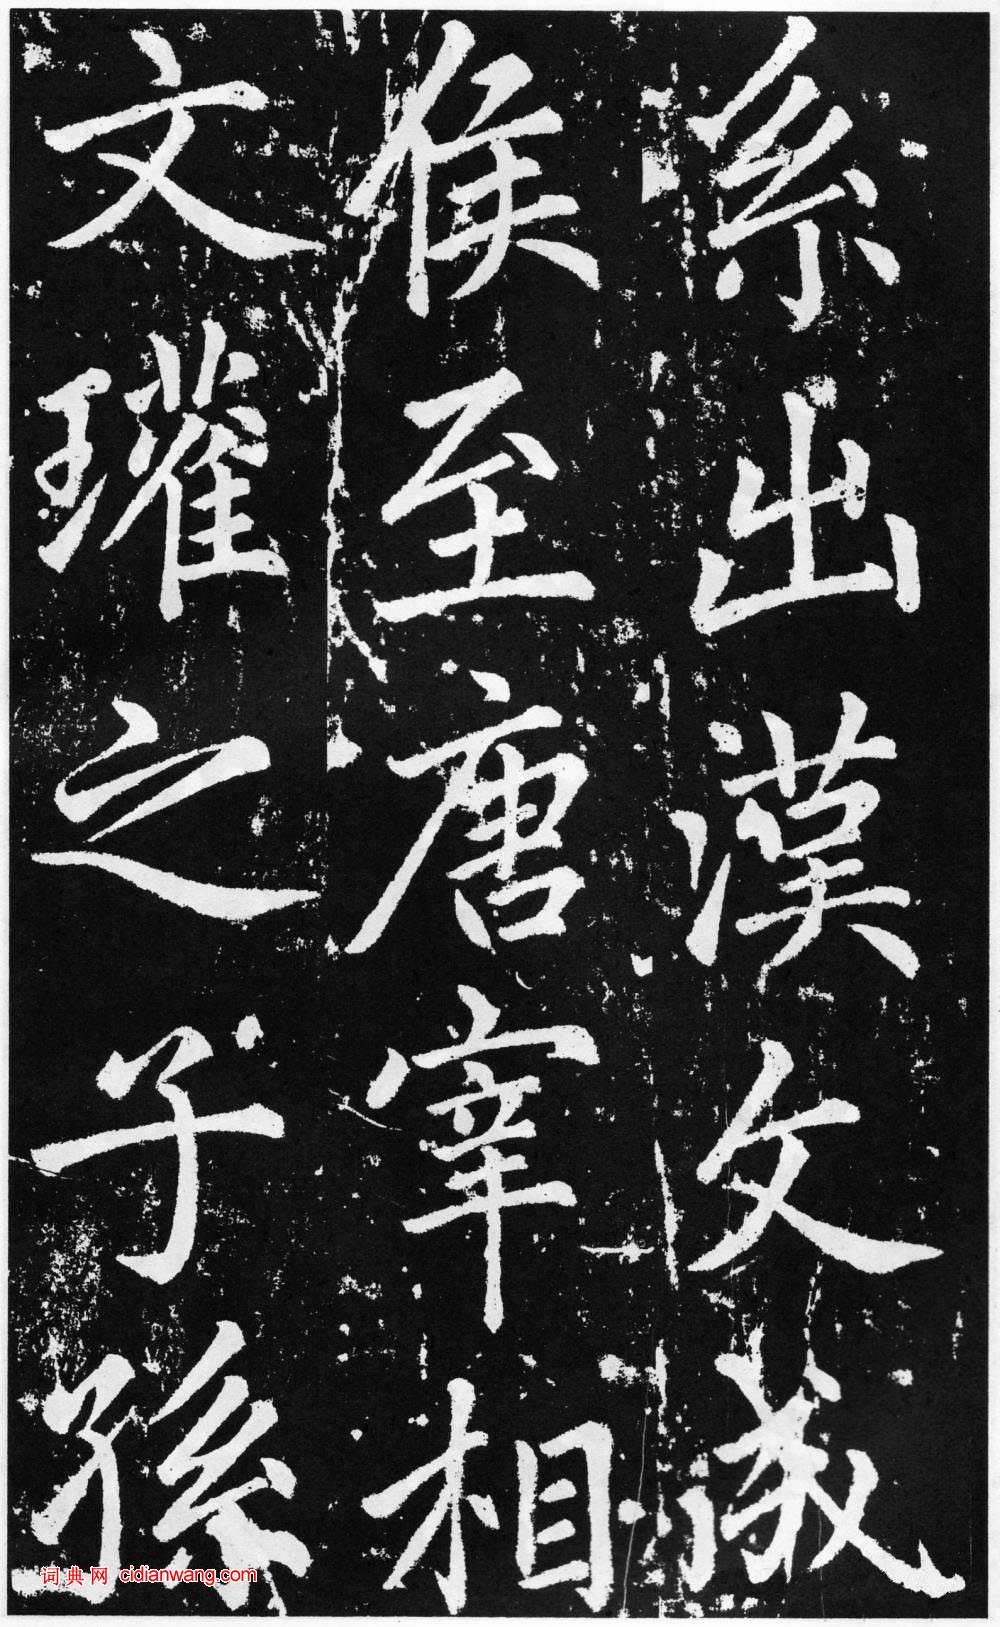 系出漢文成
侯至唐宰相
文瓘之子孫
词典网 cidianwang.com